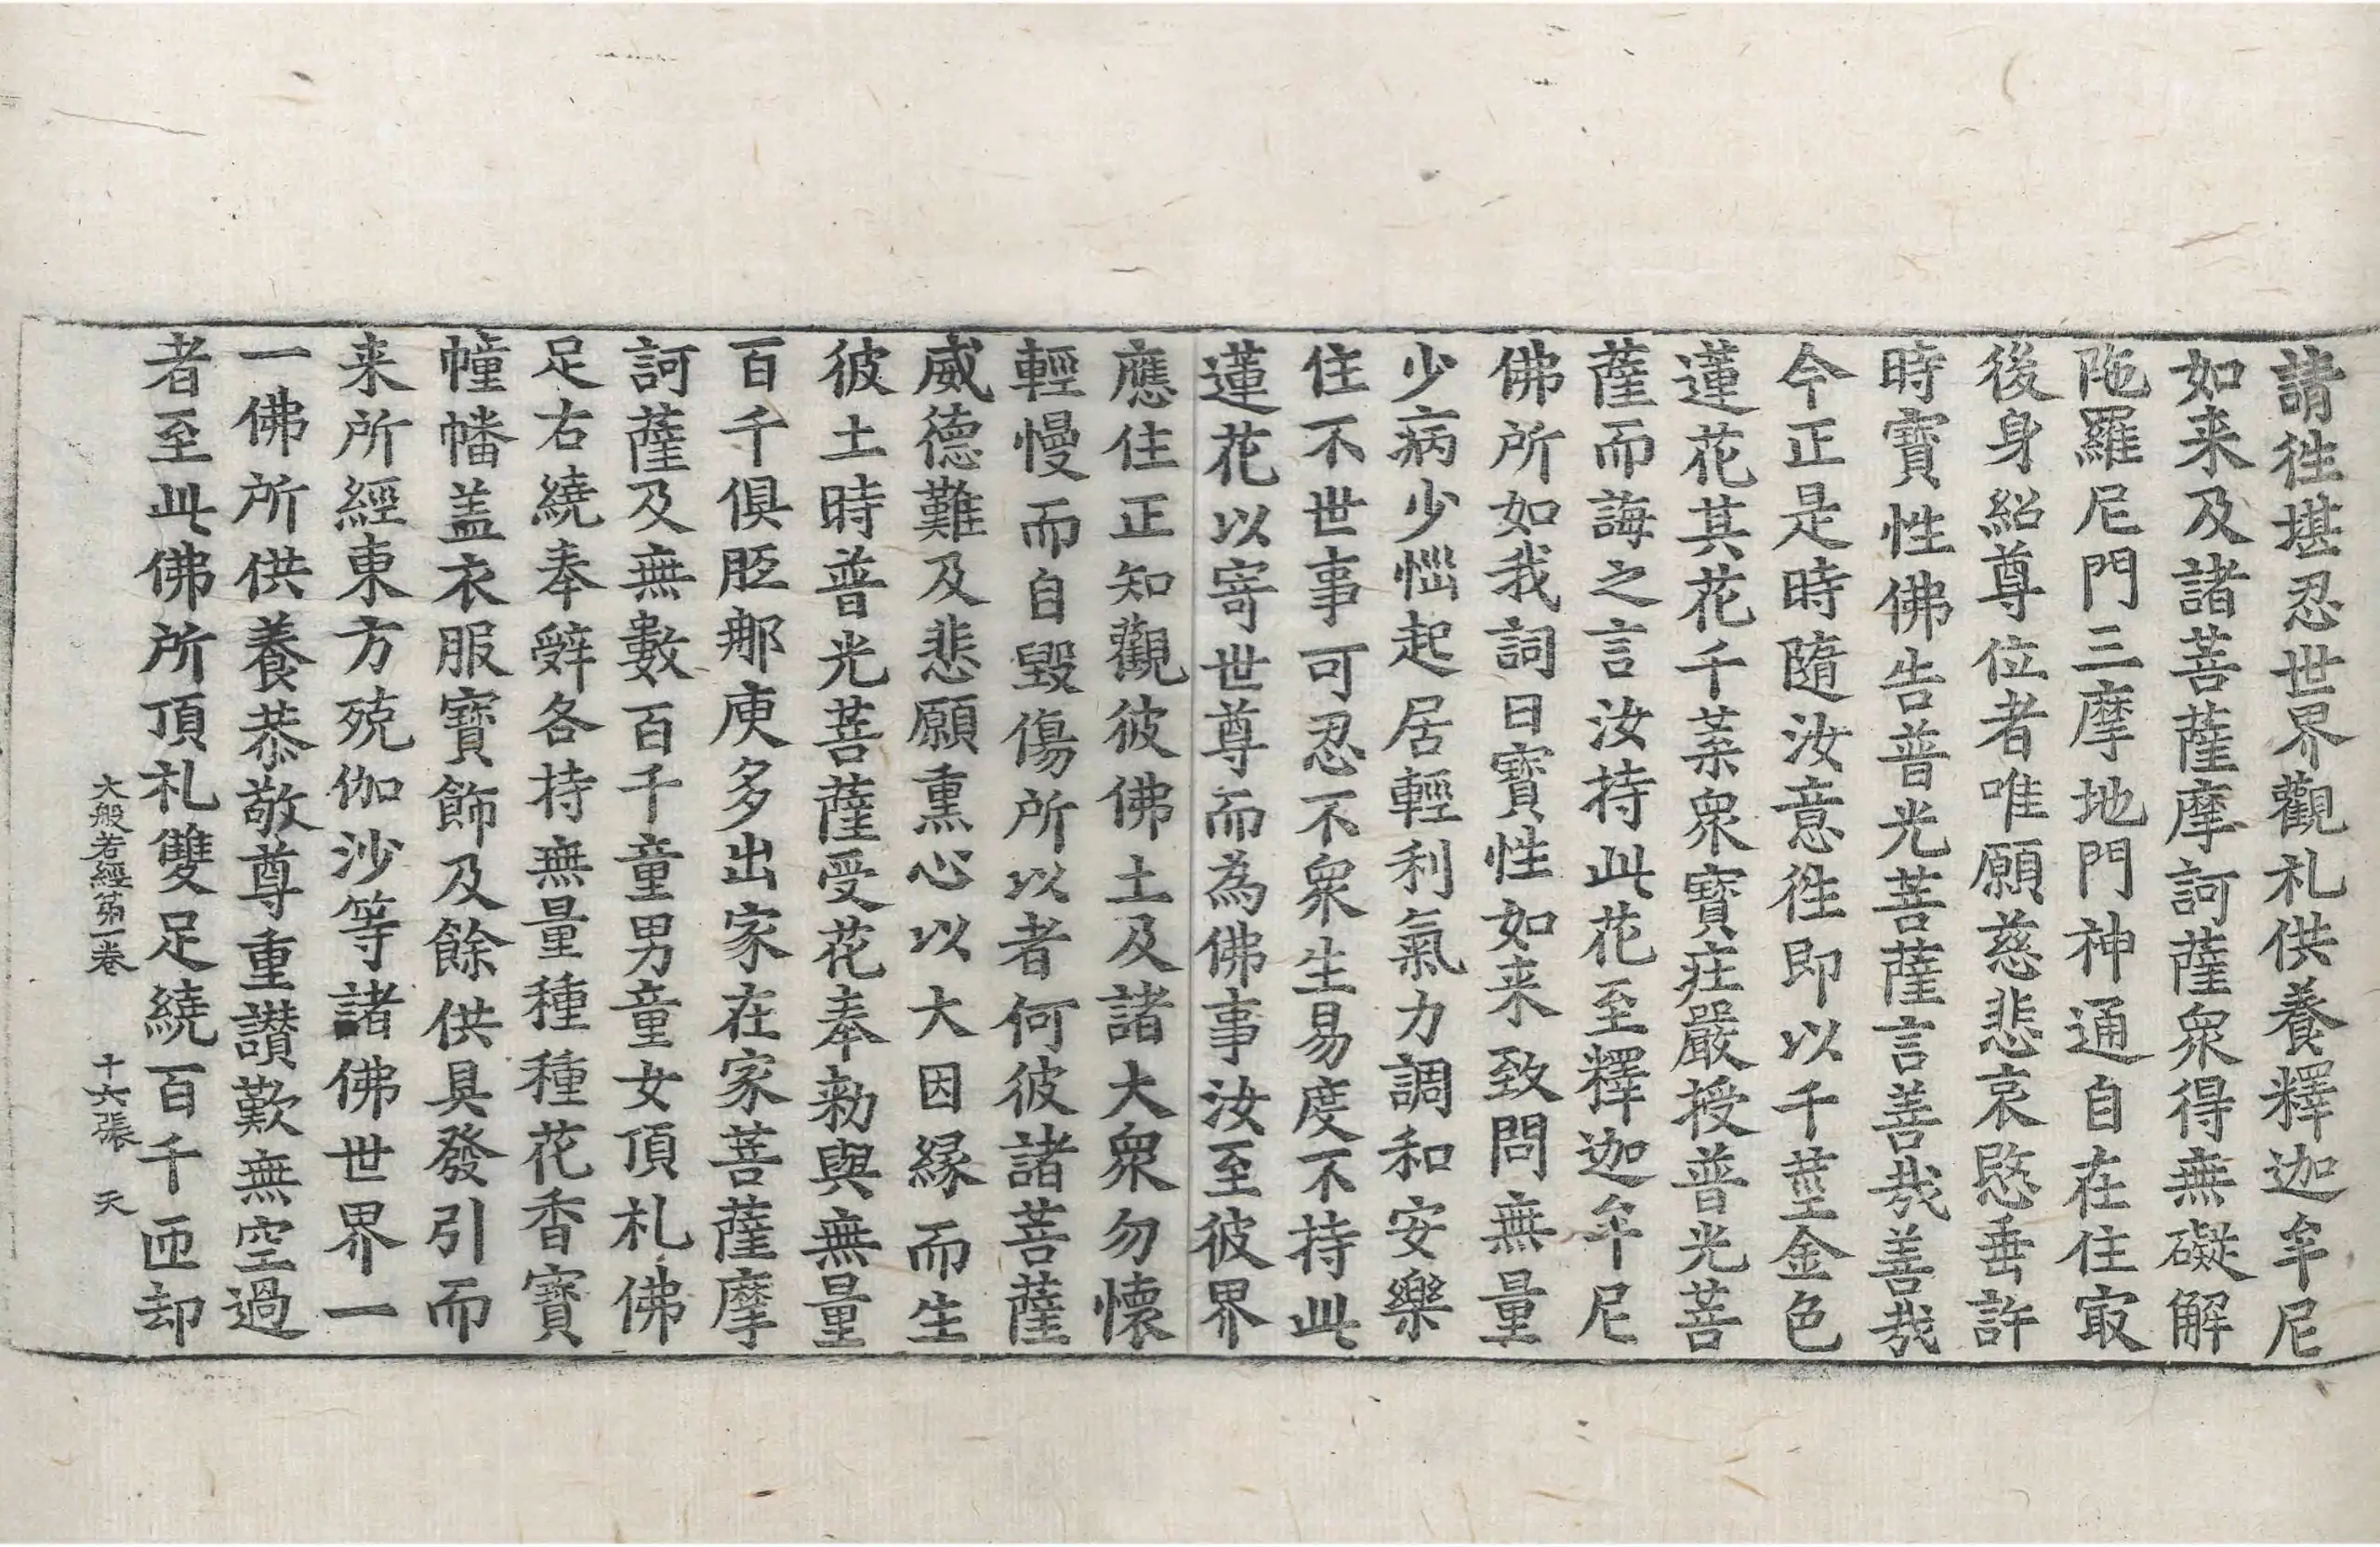 請徃堪忍世界觀礼供養釋迦牟尼
如来及諸菩薩摩訶薩衆得無礙解
陁羅尼門三摩地門神通自在住㝡
後身紹尊位者唯願慈悲哀愍垂許
時寶性佛告普光菩薩言善㢤善㢤
今正是時隨汝意徃即以千莖金色
蓮花其花千葉衆寶莊嚴授普光菩
薩而誨之言汝持此花至釋迦牟尼
佛所如我詞曰寶性如来致問無量
少病少惱起居輕利氣力調和安樂
住不世事可忍不衆生易度不持此
蓮花以寄世尊而為佛事汝至彼界
應住正知觀彼佛土及諸大衆勿懷
輕慢而自毀傷所以者何彼諸菩薩
威德難及悲願熏心以大因緣而生
彼土時普光菩薩受花奉勑與無量
百千俱胝那庾多出家在家菩薩摩
訶薩及無數百千童男童女頂礼佛
足右繞奉辤各持無量種種花香寶
幢幡盖衣服寶飾及餘供具發引而
来所經東方殑伽沙等諸佛世界一
一佛所供養恭敬尊重讃歎無空過
者至此佛所頂礼雙足繞百千匝却
大般若經第一卷 十六張 天